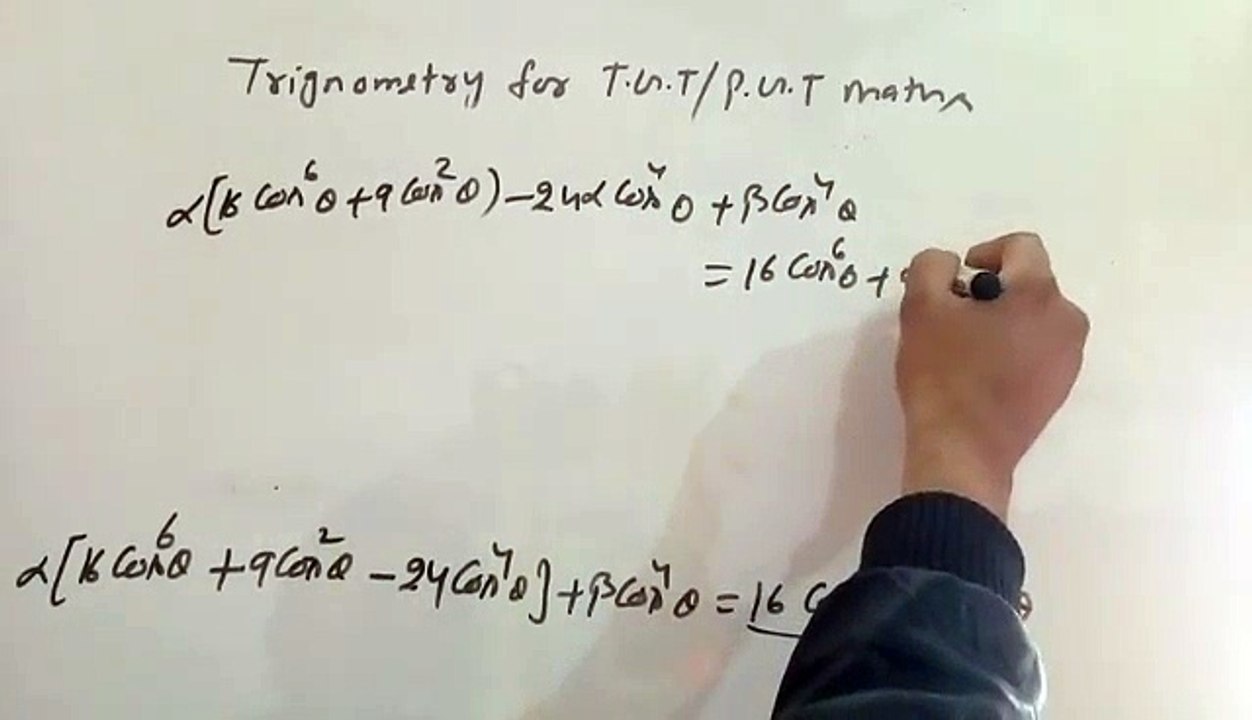 Trignometry for T.G.T/P.G.T maths
α[16 cos⁶θ + 9 cos²θ) - 24α cos⁴θ + β cos⁴θ
= 16 cos⁶θ +
α[16 cos⁶θ + 9 cos²θ - 24 cos⁴θ] + β cos⁴θ = 16 C θ